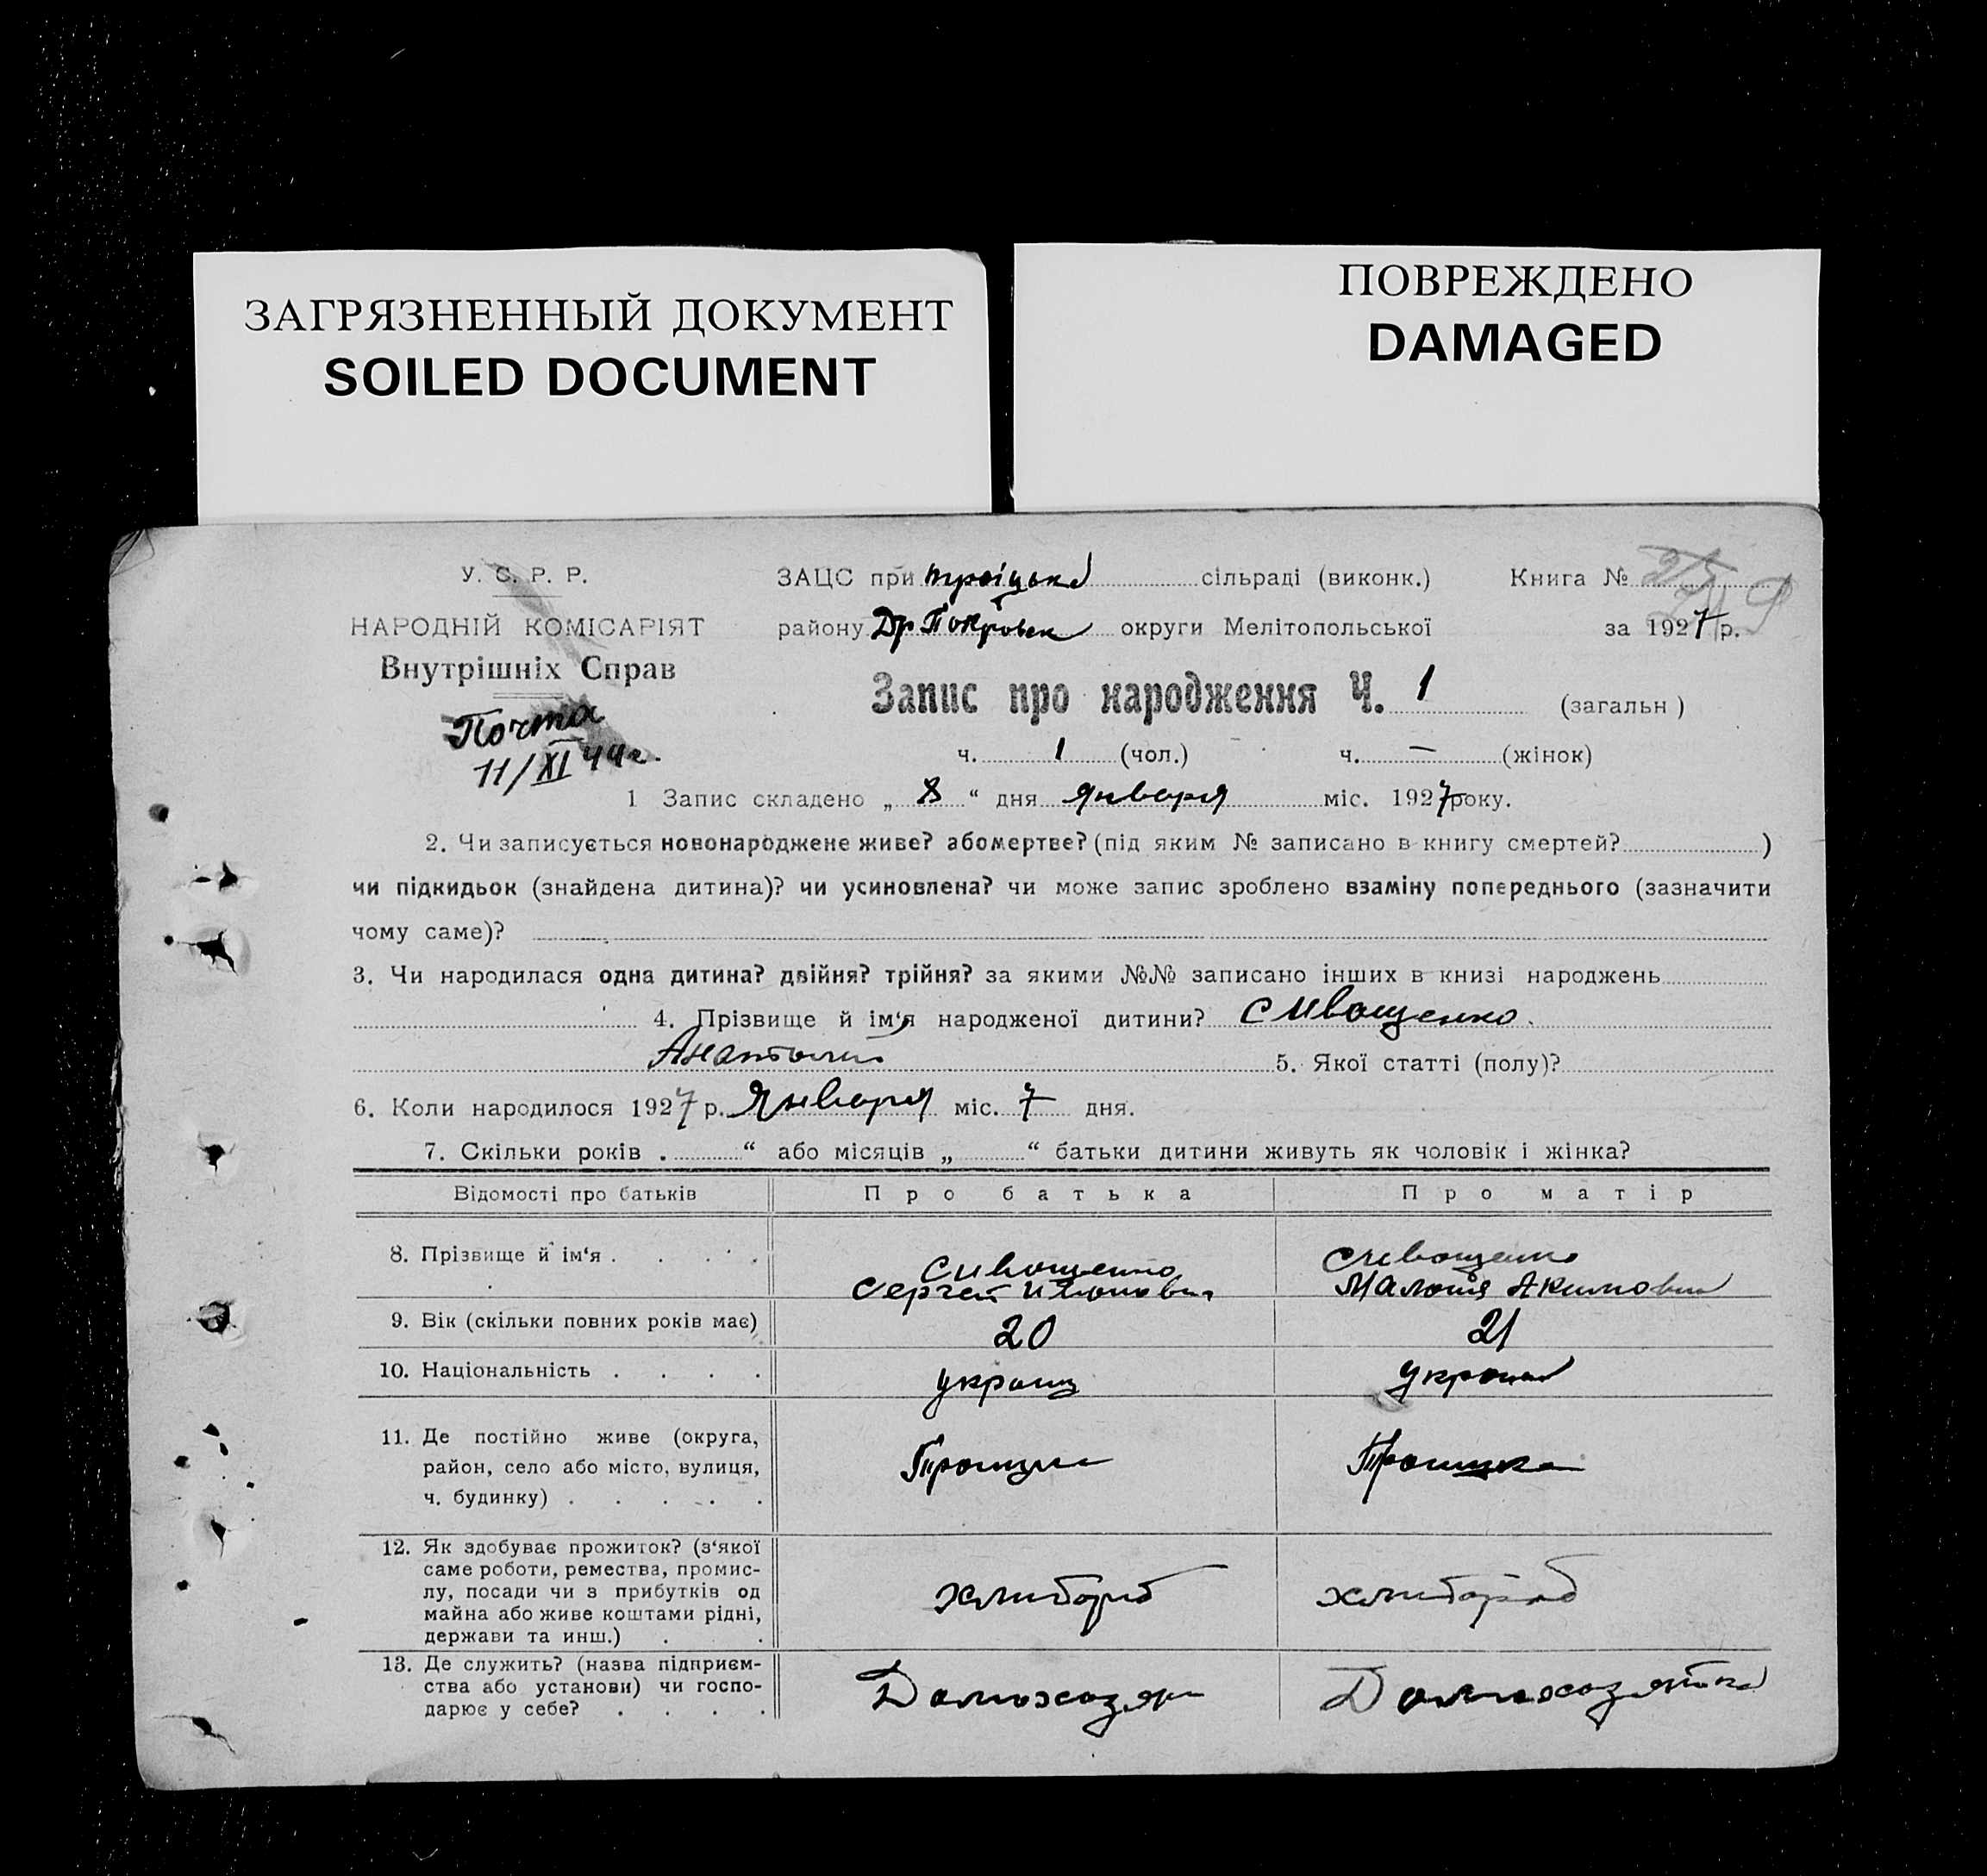 ЗАГРЯЗНЕННЫЙ ДОКУМЕНТ
SOILED DOCUMENT
ПОВРЕЖДЕНО
DAMAGED
У. С. Р. Р.
НАРОДНІЙ КОМІСАРІЯТ
Внутрішніх Справ
Почта
11/XI 44г.
ЗАЦС при троіцька сільраді (виконк.) Книга №
району Др. Покровск округи Мелітопольської за 1927 р.
Запис про народження Ч. 1 (загальн)
ч. 1 (чол.) ч. — (жінок)
1 Запис складено „ 8 “ дня января міс. 1927 року.
2. Чи записується новонароджене живе? або мертве? (під яким № записано в книгу смертей? )
чи підкидьок (знайдена дитина)? чи усиновлена? чи може запис зроблено взаміну попереднього (зазначити
чому саме)?
3. Чи народилася одна дитина? двійня? трійня? за якими №№ записано інших в книзі народжень
4. Прізвище й ім‘я народженої дитини? Сивощенко
Анатолий 5. Якої статті (полу)?
6. Коли народилося 1927 р. Января міс. 7 дня.
7. Скільки років . “ або місяців „ “ батьки дитини живуть як чоловік і жінка?
Відомості про батьків Про батька Про матір
8. Прізвище й ім‘я . . . . .
Сивощенко
Сергей
Сивощенко
Акимовн
9. Вік (скільки повних років має) 20 21
10. Національність . . . . украин украин
11. Де постійно живе (округа,
район, село або місто, вулиця,
ч. будинку) . . . . .
Троицка Троицка
12. Як здобуває прожиток? (з‘якої
саме роботи, ремества, промис-
лу, посади чи з прибутків од
майна або живе коштами рідні,
держави та инш.) . .
хлибороб хлибороб
13. Де служить? (назва підприєм-
ства або установи) чи госпо-
дарює у себе? . . . .
Домохозяин Домохозяйка